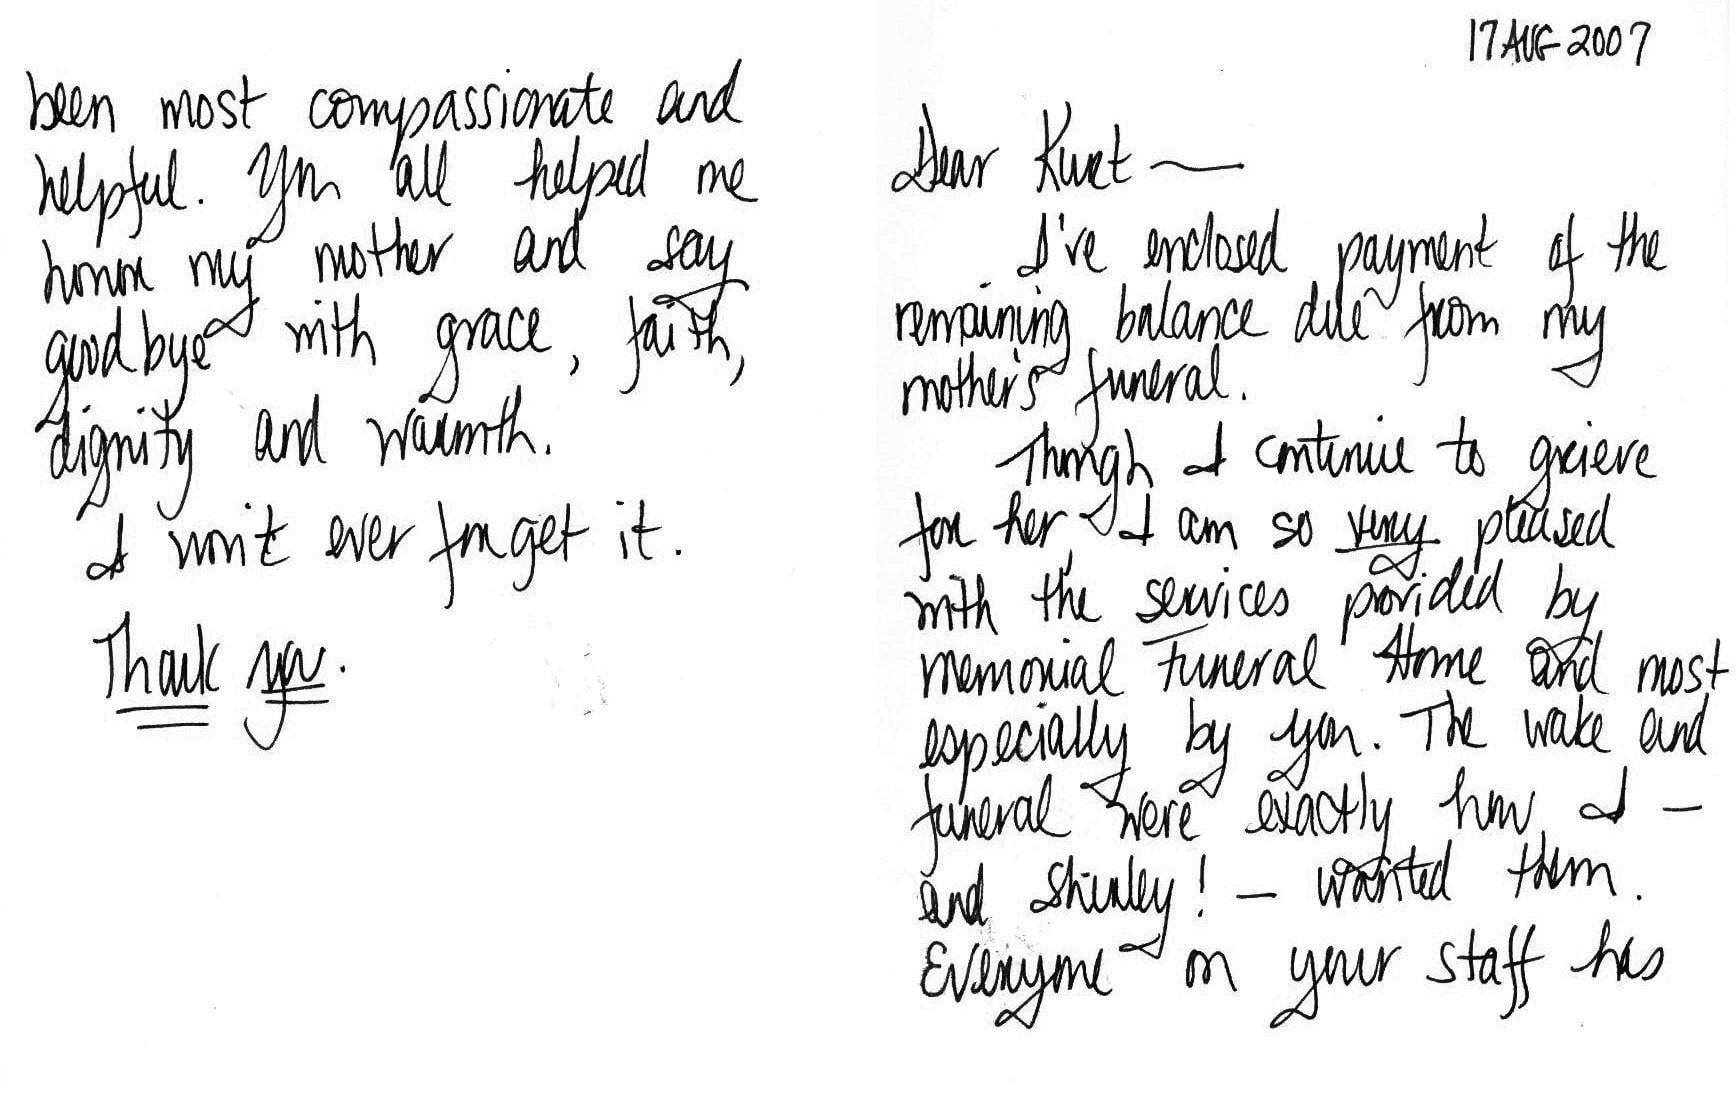 17 AUG 2007
Dear Kurt —
I've enclosed payment of the
remaining balance due from my
mother's funeral.
Though I continue to grieve
for her, I am so very pleased
with the services provided by
Memorial Funeral Home and most
especially by you. The wake and
funeral were exactly how I —
and Shirley! — wanted them.
Everyone on your staff has
been most compassionate and
helpful. You all helped me
honor my mother and say
goodbye with grace, faith,
dignity and warmth.
I won't ever forget it.
Thank you.